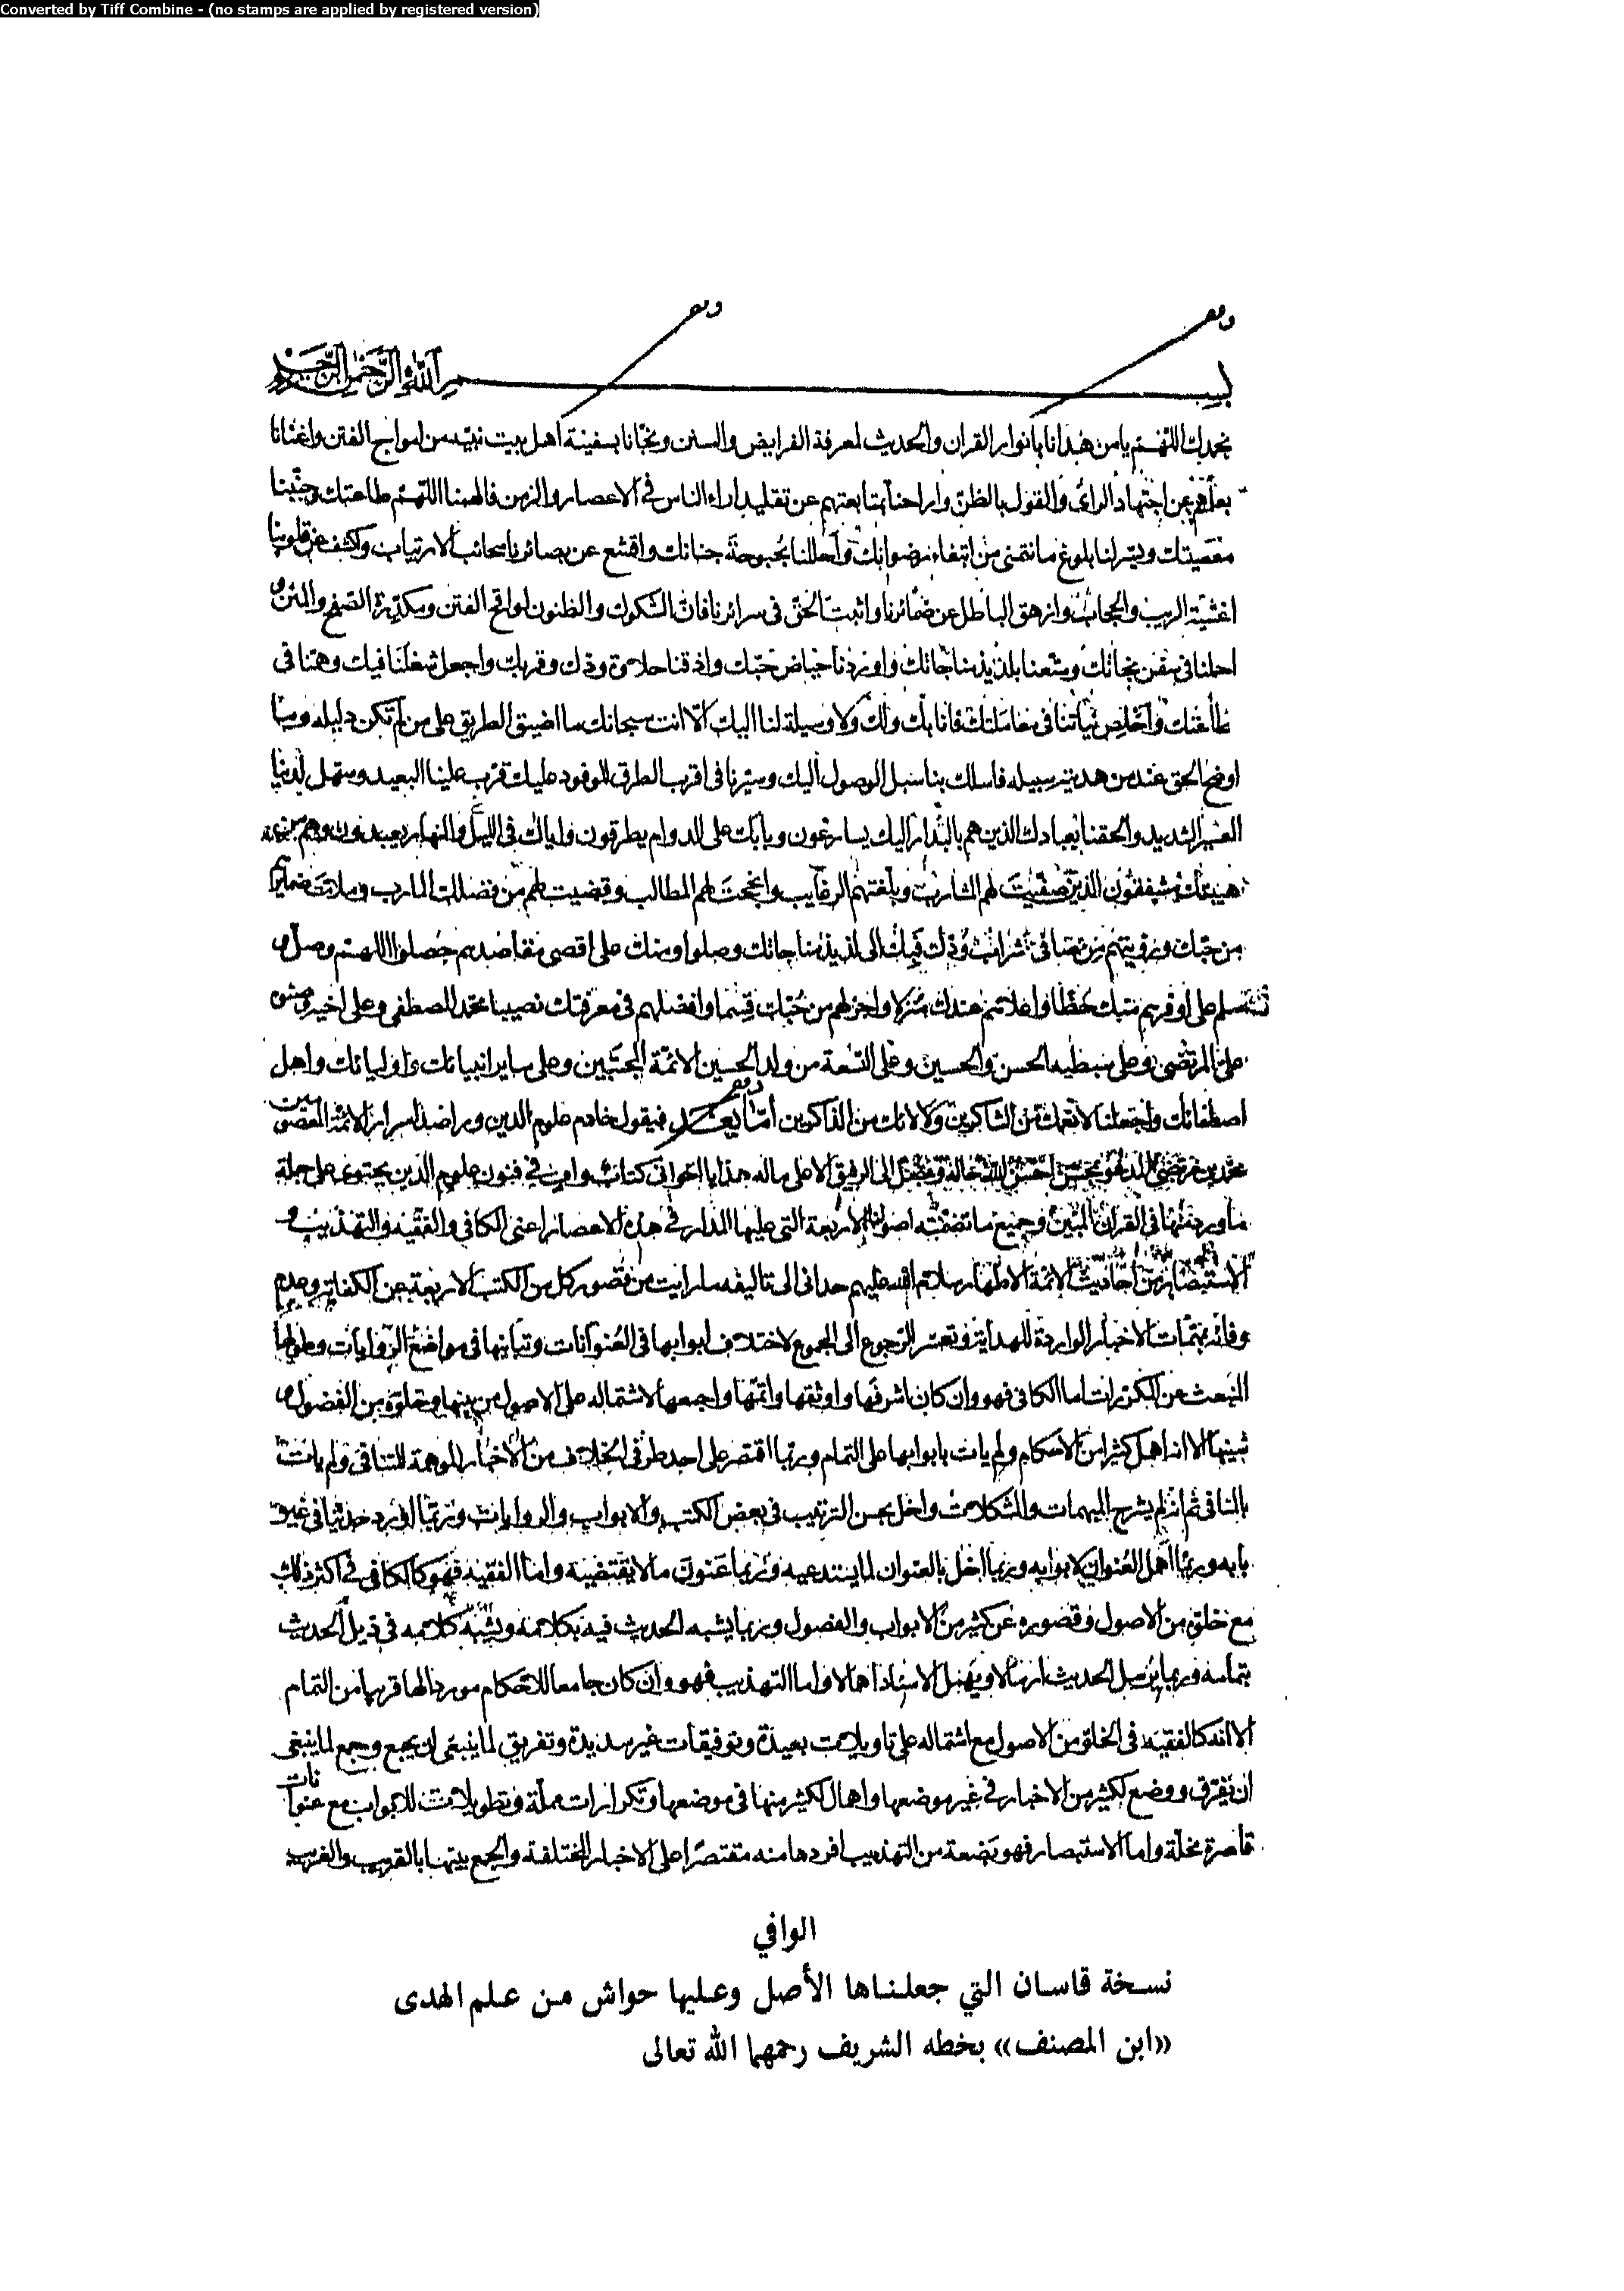 Converted by Tiff Combine - (no stamps are applied by registered version)
بسم الله الرحمن الرحيم
نحمدك اللهم يا من هدانا بانوار القران والحديث لمعرفة الفرايض والسنن ونجانا بسفينة اهل بيت نبيه من امواج الفتن واغنانا
بعلمهم عن اجتهاد الراى والقول بالظن واراحنا بمتابعتهم عن تقليد اراء الناس فى الاعصار والزمن فالهمنا اللهم طاعتك وجنبنا
معصيتك ويسر لنا بلوغ ما نتمنى من ابتغاء رضوانك واحللنا بحبوحة جنانك واقشع عن بصائرنا سحائب الارتياب واكشف عن قلوبنا
اغشية الريب والحجاب وازهق الباطل عن ضمائرنا واثبت الحق فى سرائرنا فان الشكوك والظنون لواقح الفتن ومكدرة الصفح والمنن و
احملنا فى سفن نجاتك ومتعنا بلذيذ مناجاتك واوردنا حياض حبك واذقنا حلاوة ودك وقربك واجعل شغلنا فيك وهمنا فى
طاعتك واخلص نياتنا فى معاملتك فانا بك ولك ولا وسيلة لنا اليك الا انت سبحانك ما اضيق الطريق على من لم تكن دليله وما
اوضح الحق عند من هديته سبيله فاسلك بنا سبل الوصول اليك وسيرنا فى اقرب الطرق للوفود عليك قرب علينا البعيد وسهل لدينا
العسير الشديد والحقنا بعبادك الذين هم بالبدار اليك يسارعون وبابك على الدوام يطرقون واياك فى الليل والنهار يعبدون وهم من
هيبتك مشفقون الذين صفيت لهم المشارب وبلغتهم الرغايب وانجحت لهم المطالب وقضيت لهم من فضلك المارب وملات ضمائرهم
من حبك ورويتهم من صافى شرابك فبك الى لذيذ مناجاتك وصلوا ومنك على اقصى مقاصدهم حصلوا اللهم وصل و
سلم على اوفرهم منك حظا واعلاهم عندك منزلا واجزلهم من حبك قسما وافضلهم فى معرفتك نصيبا محمد المصطفى وعلى اخيه
على المرتضى وعلى سبطيه الحسن والحسين وعلى التسعة من ولد الحسين الائمة المجتبين وعلى ساير انبيائك واوليائك واهل
اصطفائك واجعلنا لانعمك من الشاكرين ولالائك من الذاكرين اما بعد فيقول خادم علوم الدين وراصد اسرار الائمة المعصومين
محمد بن مرتضى المدعو بمحسن احسن الله حاله وجعل الى الرفيق الاعلى ماله هذا يا اخوانى كتاب واف فى فنون علوم الدين يحتوى على جملة
ما ورد منها فى القران المبين وجميع ما تضمنته اصولنا الاربعة التى عليها المدار فى هذه الاعصار اعنى الكافى والفقيه والتهذيب و
الاستبصار من احاديث الائمة الاطهار سلام الله عليهم حدانى الى تاليفه ما رايت من قصور كل من الكتب الاربعة عن الكفاية وعدم
وفائه بمهمات الاخبار الواردة للهداية وتعسر الرجوع الى المجموع لاختلاف ابوابها فى العنوانات وتباينها فى مواضع الروايات وطولها
المنبعث عن المكررات اما الكافى فهو وان كان اشرفها واوثقها واتمها واجمعها لاشتماله على الاصول من بينها وخلوه من الفضول و
شينها الا انه اهمل كثيرا من الاحكام ولم يات بابوابها على التمام وربما اقتصر على احد طرفى الخلاف من الاخبار الموهمة للتنافى ولم يات
بالمنافى ثم انه لم يشرح المبهمات والمشكلات واخل بحسن الترتيب فى بعض الكتب والابواب والروايات وربما اورد حديثا فى غير
بابه وربما اهمل العنوان لابوابه وربما اخل بالعنوان لما يستدعيه وربما عنون ما لا يقتضيه واما الفقيه فهو كالكافى فى اكثر ذلك
مع خلوه من الاصول وقصوره عن كثير من الابواب والفصول وربما يشبه الحديث فيه بكلامه ويشبه كلامه فى ذيل الحديث
بتمامه وربما يرسل الحديث ارسالا ويهمل الاسناد اهمالا واما التهذيب فهو وان كان جامعا للاحكام موردا لها قريبا من التمام
الا انه كالفقيه فى الخلو من الاصول مع اشتماله على تاويلات بعيدة وتوفيقات غير سديدة وتفريق لما ينبغى ان يجمع وجمع لما ينبغى
ان يفرق ووضع لكثير من الاخبار فى غير موضعها واهمال لكثير منها فى موضعها وتكرارات مملة وتطويلات للابواب مع عنوانات
قاصرة مخلة واما الاستبصار فهو بضعة من التهذيب افردها منه مقتصرا على الاخبار المختلفة والجمع بينها بالقريب والغريب
الوافي
نسخة قاسان التي جعلناها الأصل وعليها حواش من علم الهدى
«ابن المصنف» بخطه الشريف رحمهما الله تعالى